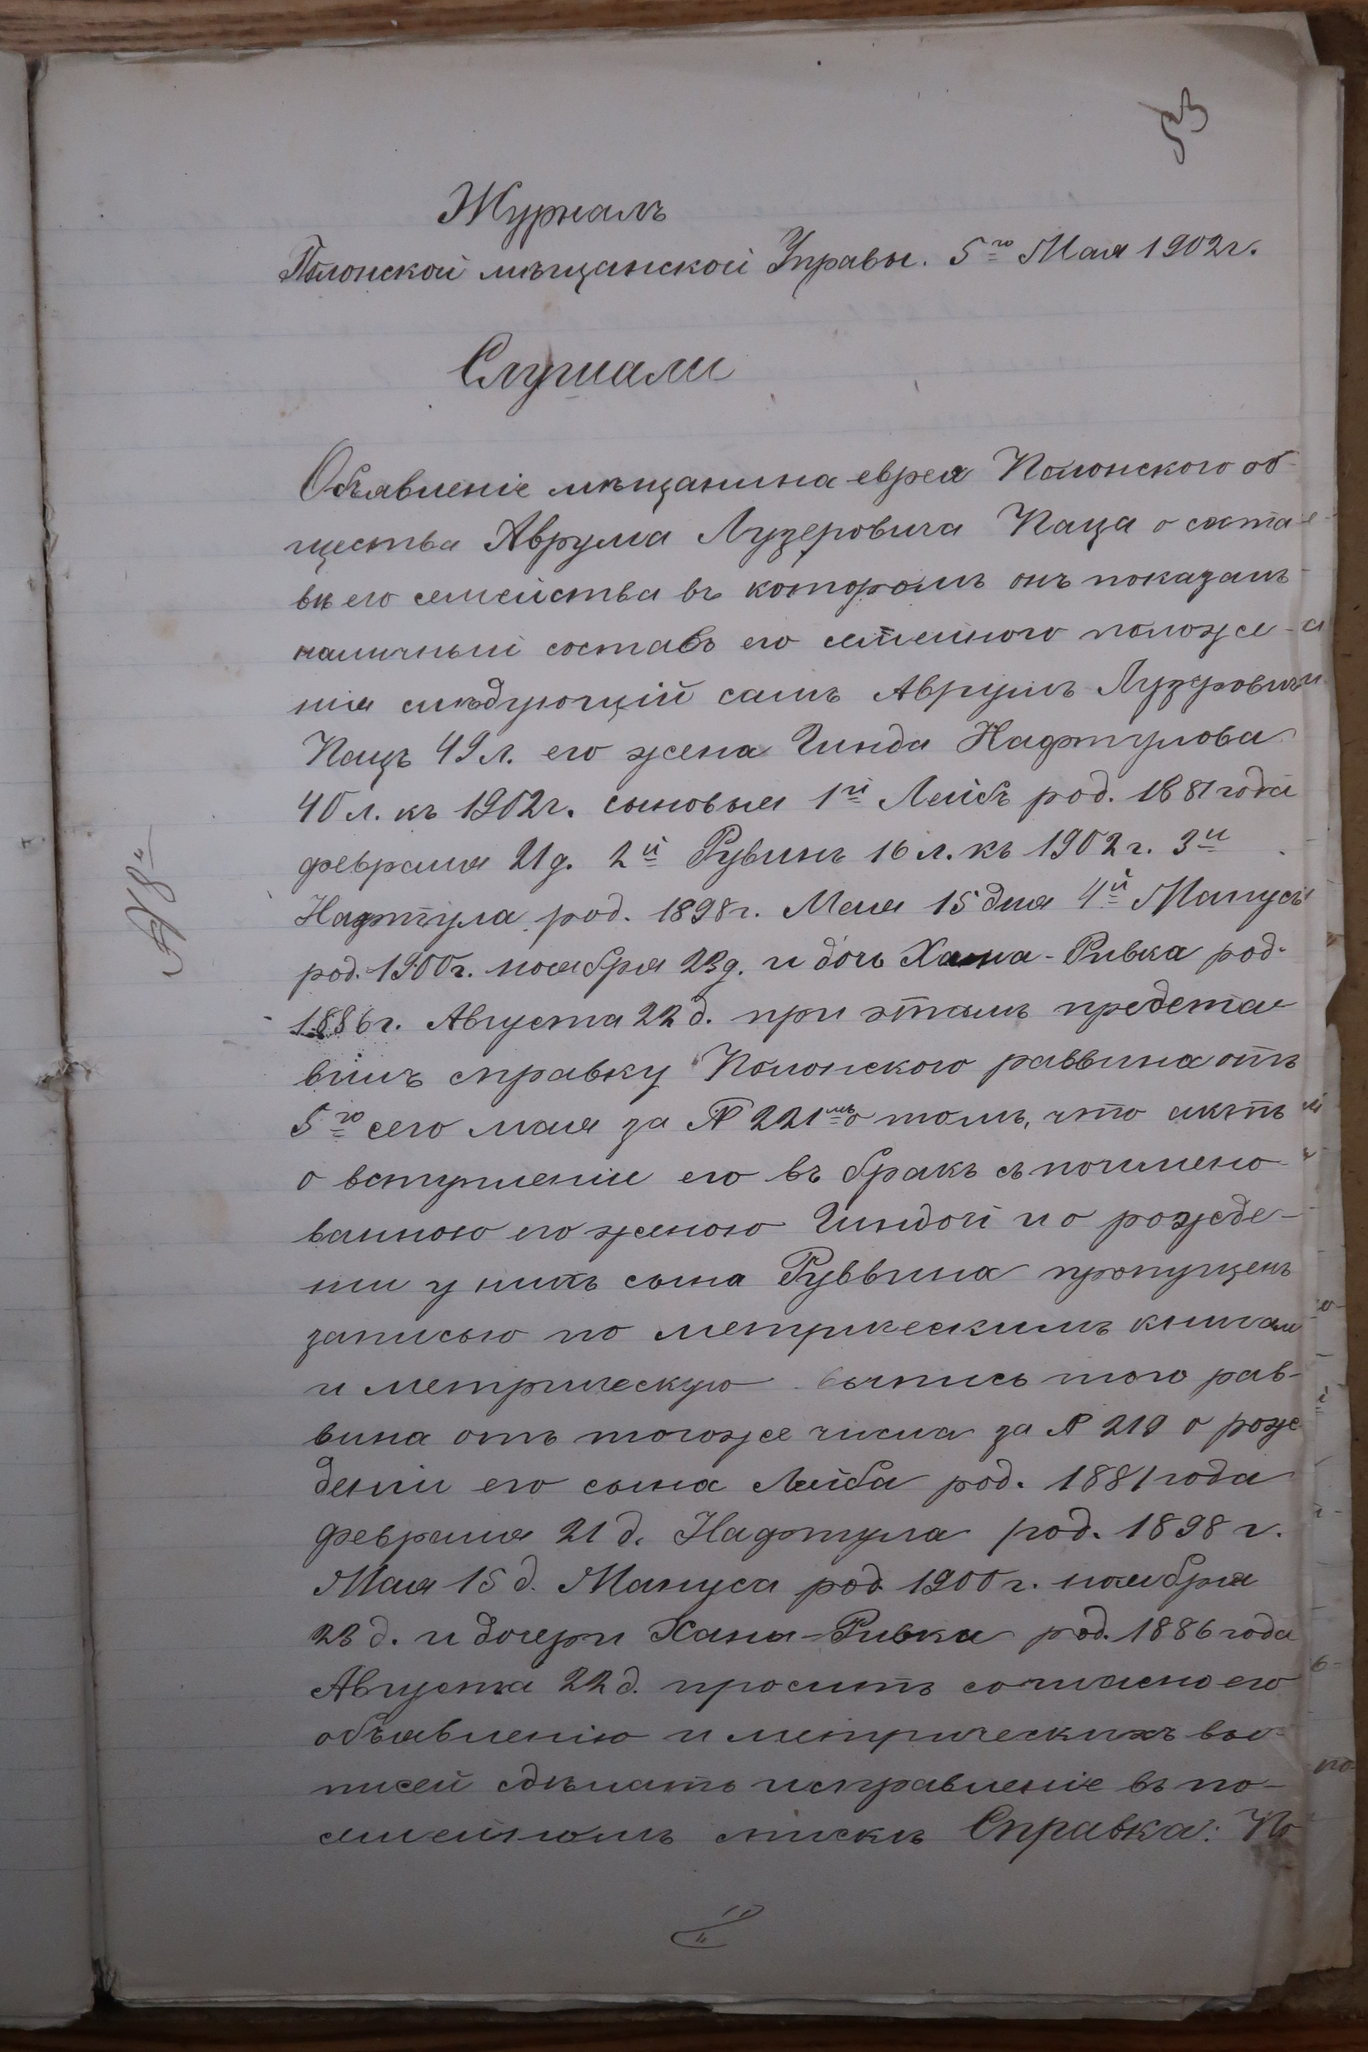 53
Журналъ
Полонской мѣщанской Управы. 5го Мая 1902г.
Слушали
Объявленіе мѣщанина еврея Полонского об-
щества Аврума Лузеровича Каца о соста-
вѣ его семейства въ которомъ онъ показалъ
наличный составъ его семейного положе-
нія слѣдующій самъ Аврумъ Лузеровичъ
Кацъ 49л. его жена Гинда Нафтулова
40 л. къ 1902г. сыновья 1й Лейбъ род. 1881 года
февраля 21д. 2й Рувинъ 16 л. къ 1902 г. 3й
Нафтула род. 1898г. Мая 15 дня 4й Манусъ
род. 1900г. ноября 23д. и дочь Хана-Ривка род.
1886г. Августа 22 д. при этомъ предста
вилъ справку Полонского раввина отъ
5го сего мая за № 221мъ о томъ, что актъ
о вступленіи его въ бракъ съ поимено-
ванною его женою Гиндой и о рожде-
ніи у нихъ сына Руввина пропущенъ
записью по метрическимъ книгам
и метрическую выпись того рав-
вина отъ тогоже числа за № 219 о рож
деніи его сына Лейба род. 1881 года
февраля 21 д. Нафтула род. 1898 г.
Мая 15 д. Мануса род 1900 г. ноября
23 д. и дочери Ханы-Ривка род. 1886 года
Августа 22 д. проситъ согласно его
объявленію и метрическихъ вы-
писей сдѣлать исправленіе въ по-
семейномъ спискѣ Справка: По